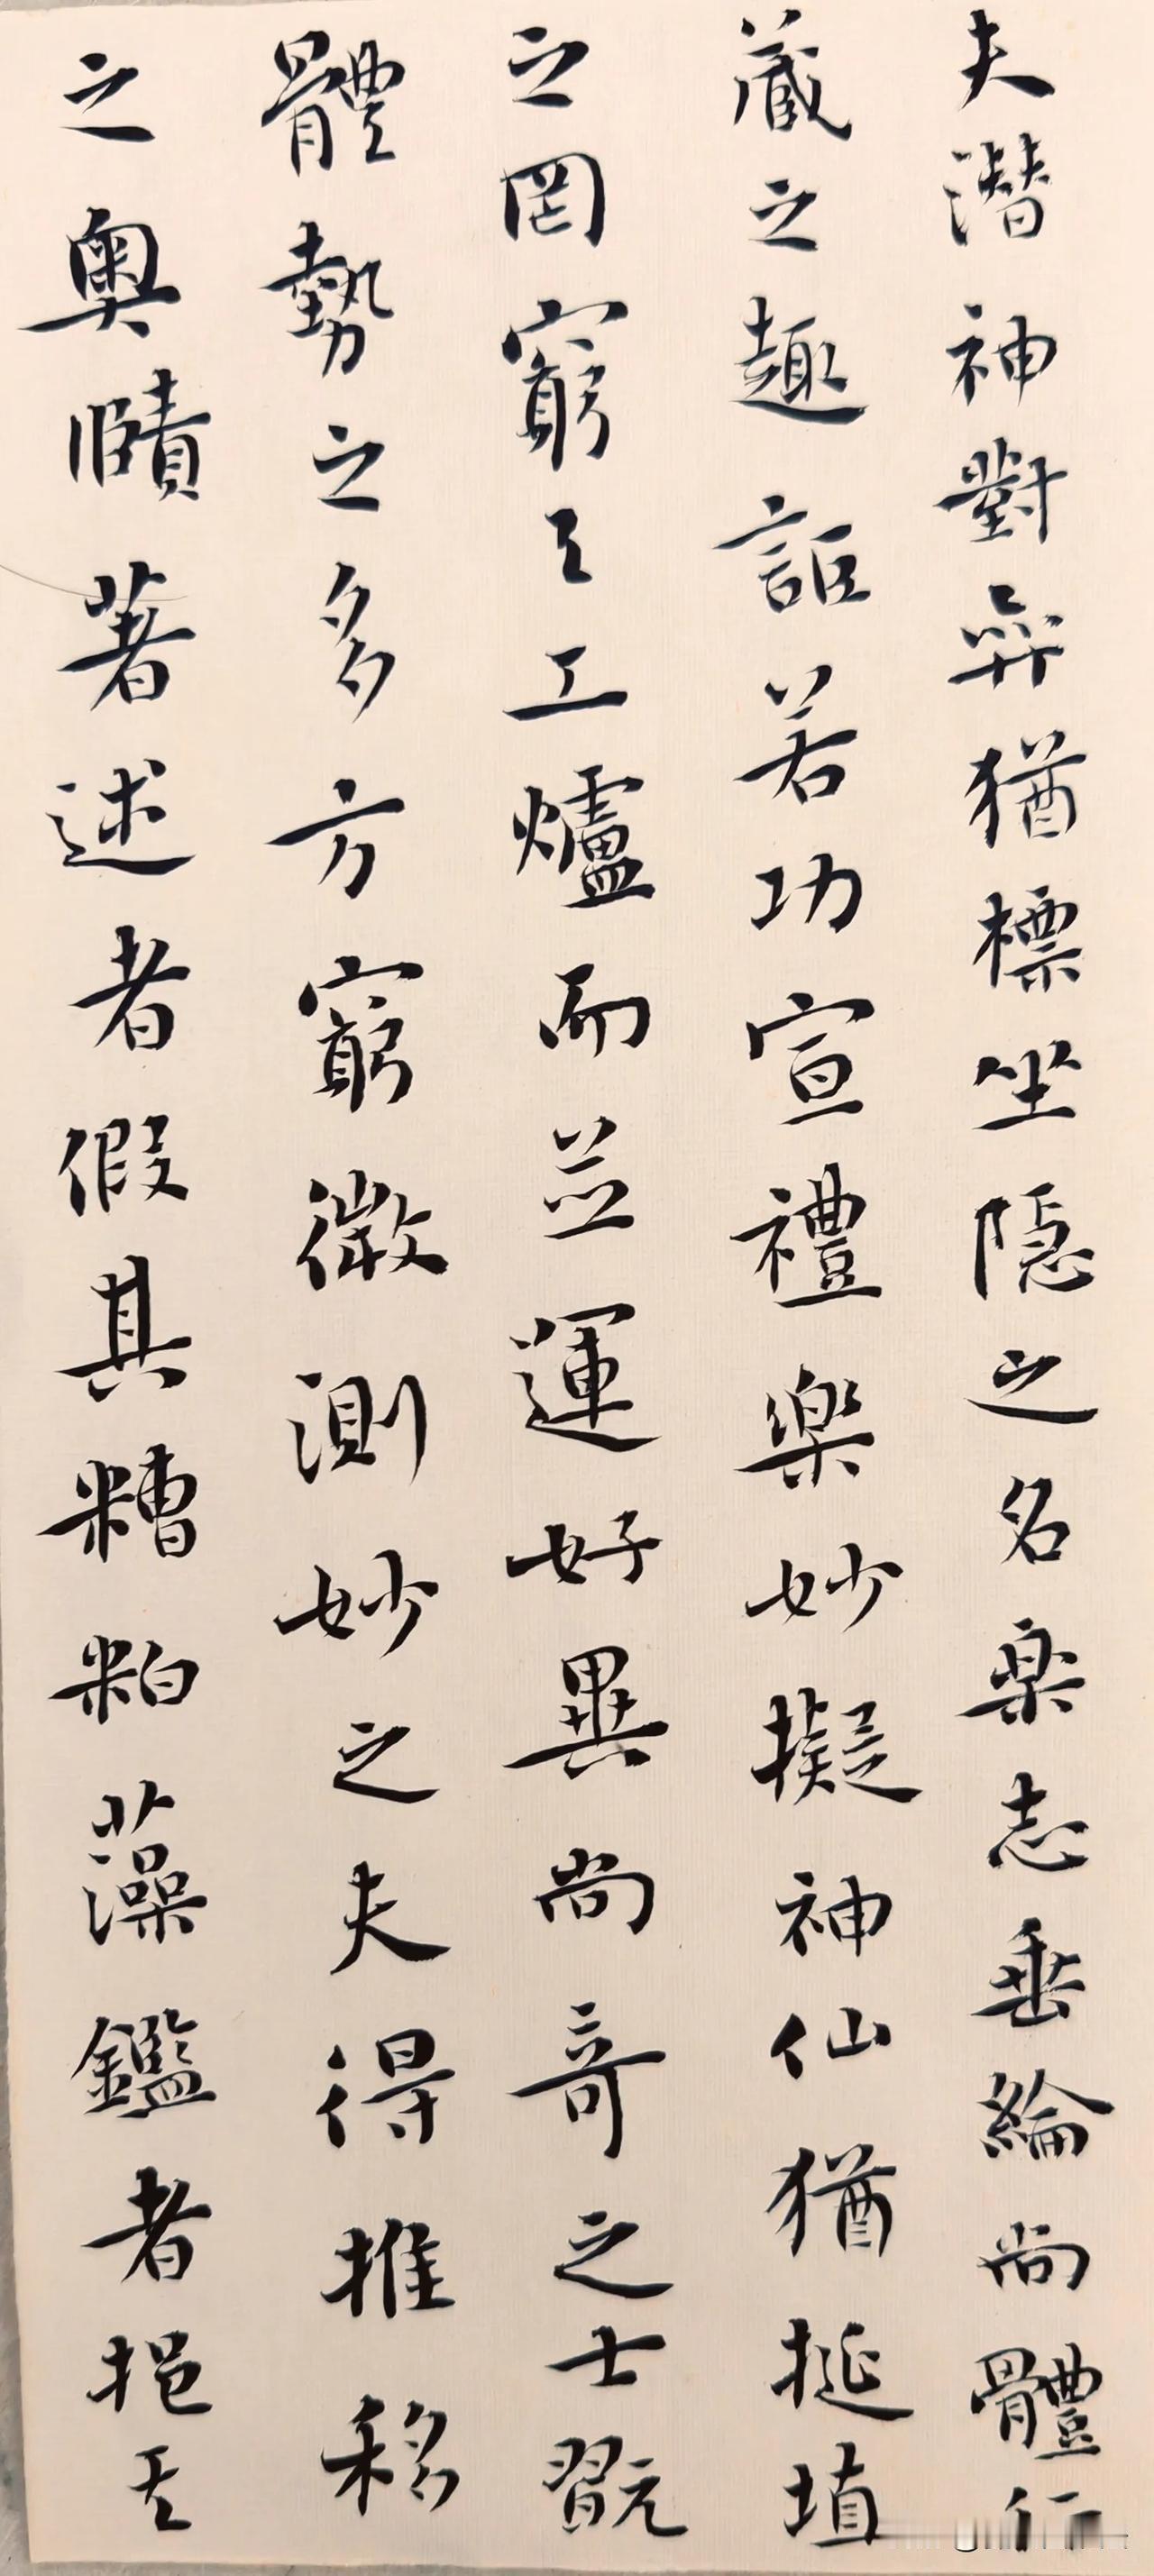 夫潛神對弈猶標坐隱之名樂志垂綸尚體行
藏之趣詎若功宣禮樂妙擬神仙猶挻埴
之罔窮与工爐而並運好異尚奇之士翫
體勢之多方窮微測妙之夫得推移
之奧賾著述者假其糟粕藻鑑者挹其